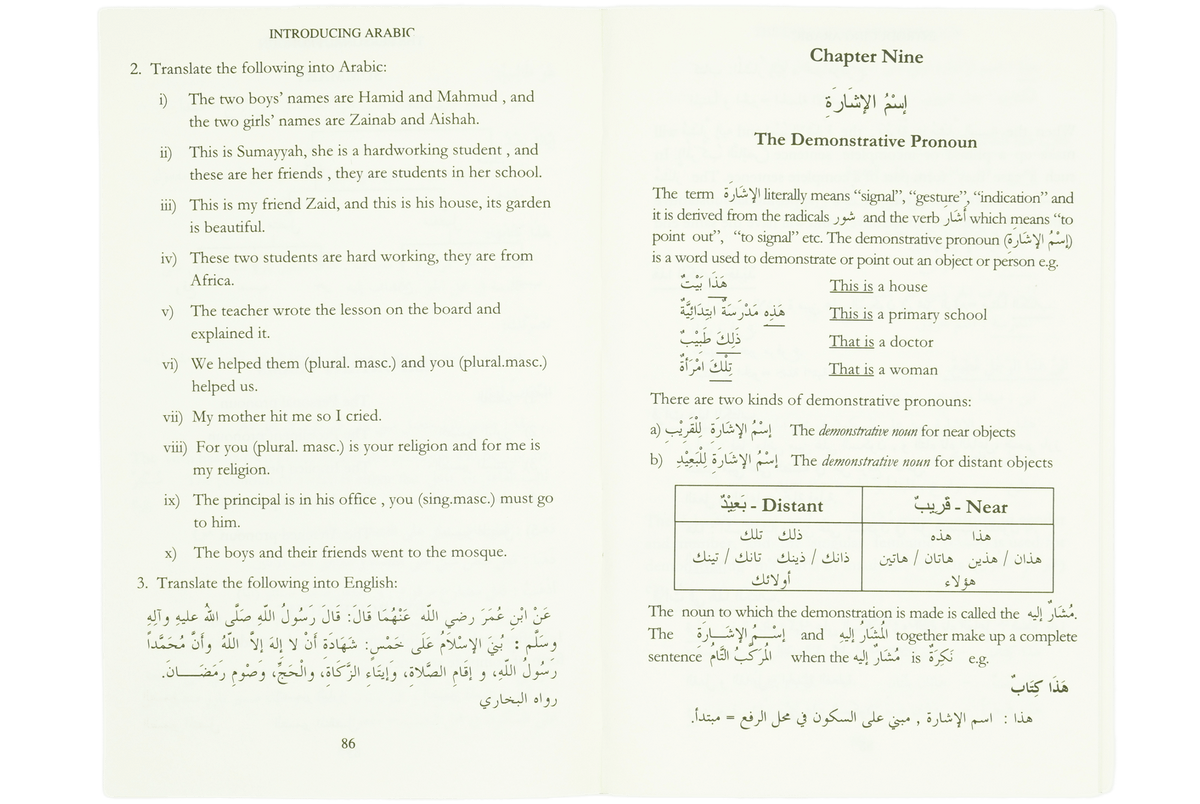 INTRODUCING ARABIC
2. Translate the following into Arabic:
i) The two boys' names are Hamid and Mahmud , and
the two girls' names are Zainab and Aishah.
ii) This is Sumayyah, she is a hardworking student , and
these are her friends , they are students in her school.
iii) This is my friend Zaid, and this is his house, its garden
is beautiful.
iv) These two students are hard working, they are from
Africa.
v) The teacher wrote the lesson on the board and
explained it.
vi) We helped them (plural. masc.) and you (plural.masc.)
helped us.
vii) My mother hit me so I cried.
viii) For you (plural. masc.) is your religion and for me is
my religion.
ix) The principal is in his office , you (sing.masc.) must go
to him.
x) The boys and their friends went to the mosque.
3. Translate the following into English:
عَنْ ابْنِ عُمَرَ رضي اللَّه عَنْهُمَا قَالَ: قَالَ رَسُولُ اللَّهِ صَلَّى اللهُ عليهِ وآلِهِ
وسَلَّم : بُنِيَ الإسْلاَمُ عَلَى خَمْسٍ: شَهَادَةِ أَنْ لا إلهَ إلاَّ اللَّهُ وأَنَّ مُحَمَّداً
رَسُولُ اللَّهِ، و إقَامِ الصَّلاةِ، وإيتَاءِ الزَّكَاةِ، والْحَجِّ، وصَوْمِ رَمَضَـــان.
رواه البخاري
86
Chapter Nine
إسْمُ الإشَارَةِ
The Demonstrative Pronoun
The term الإشَارَة literally means “signal”, “gesture”, “indication” and
it is derived from the radicals شور and the verb أَشَار which means “to
point out”, “to signal” etc. The demonstrative pronoun (إسْمُ الإشَارَة)
is a word used to demonstrate or point out an object or person e.g.
هَذَا بَيْتٌ This is a house
هَذِهِ مَدْرَسَةٌ ابتِدَائِيَّةٌ This is a primary school
ذَلِكَ طَبِيْبٌ That is a doctor
تِلْكَ امْرَأةٌ That is a woman
There are two kinds of demonstrative pronouns:
a) إسْمُ الإشَارَةِ لِلْقَرِيْبِ The demonstrative noun for near objects
b) إسْمُ الإشَارَةِ لِلْبَعِيْدِ The demonstrative noun for distant objects
بَعِيْدٌ - Distant قَرِيبٌ - Near
ذلك تلك هذا هذه
ذانك / ذينك تانك / تينك هذان / هذين هاتان / هاتين
أولائك هؤلاء
The noun to which the demonstration is made is called the مُشَارٌ إليه.
The إسْـــمُ الإشَـــارَة and المُشَارُ إليه together make up a complete
sentence المُرَكَّبُ التَّامُ when the مُشَارٌ إليه is نَكِرَةٌ e.g.
هَذَا كِتَابٌ
هذا : اسم الإشارة , مبني على السكون في محل الرفع = مبتدأ.